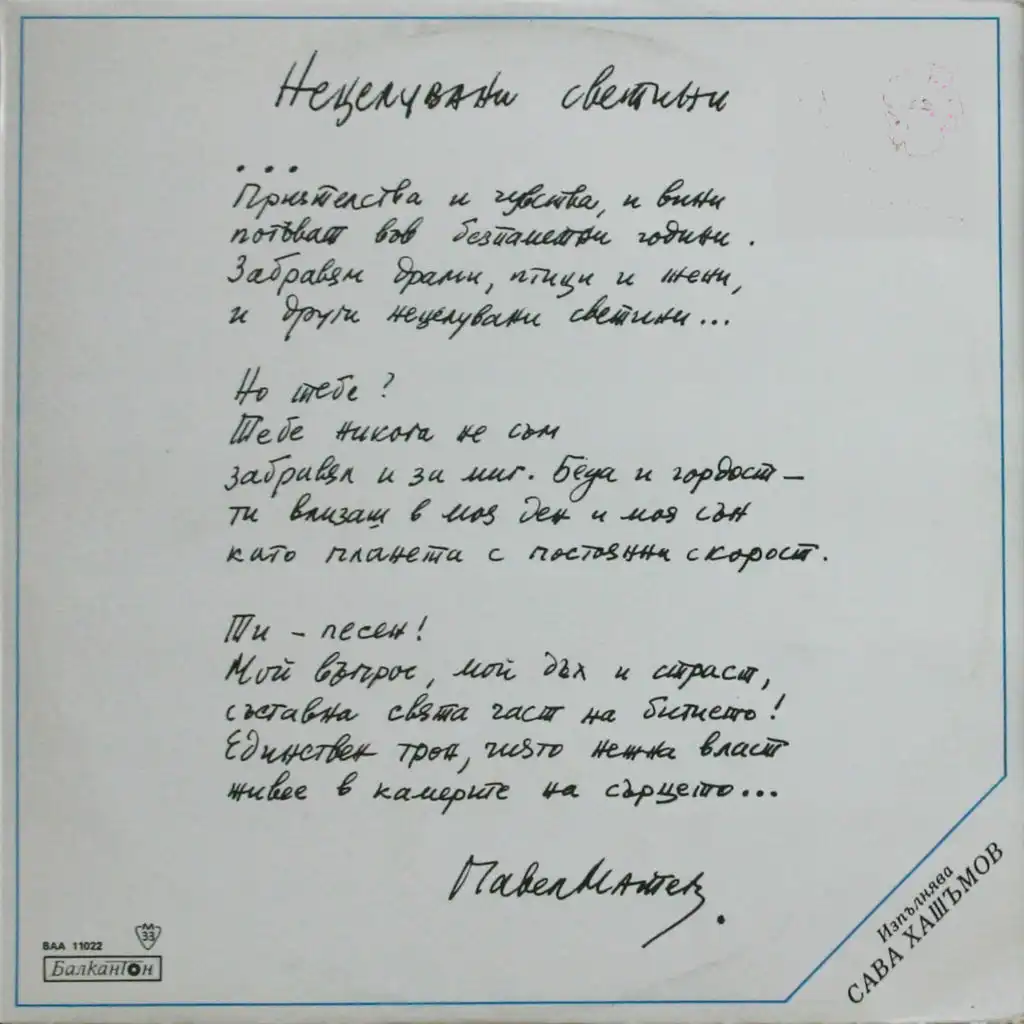 Нецелувани светини
...
Приятелства и чувства, и вини
потъват във безпаметни години.
Забравям драми, птици и жени,
и други нецелувани светини...
Но тебе?
Тебе никога не съм
забравял и за миг. Беда и гордост –
ти влизаш в моя ден и моя сън
като планета с постоянни скорост.
Ти – песен!
Мой въпрос, мой дъх и страст,
съставна свята част на битието!
Единствен трон, чиято нежна власт
живее в камерите на сърцето...
Павел Матев.
ВАА 11022
М 33
Балкантон
Изпълнява
САВА ХАШЪМОВ